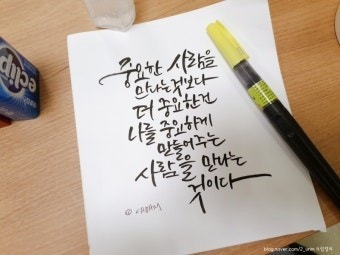 중요한 사람을
만나는것보다
더 중요한건
나를 중요하게
만들어주는
사람을 만나는
것이다
eclip